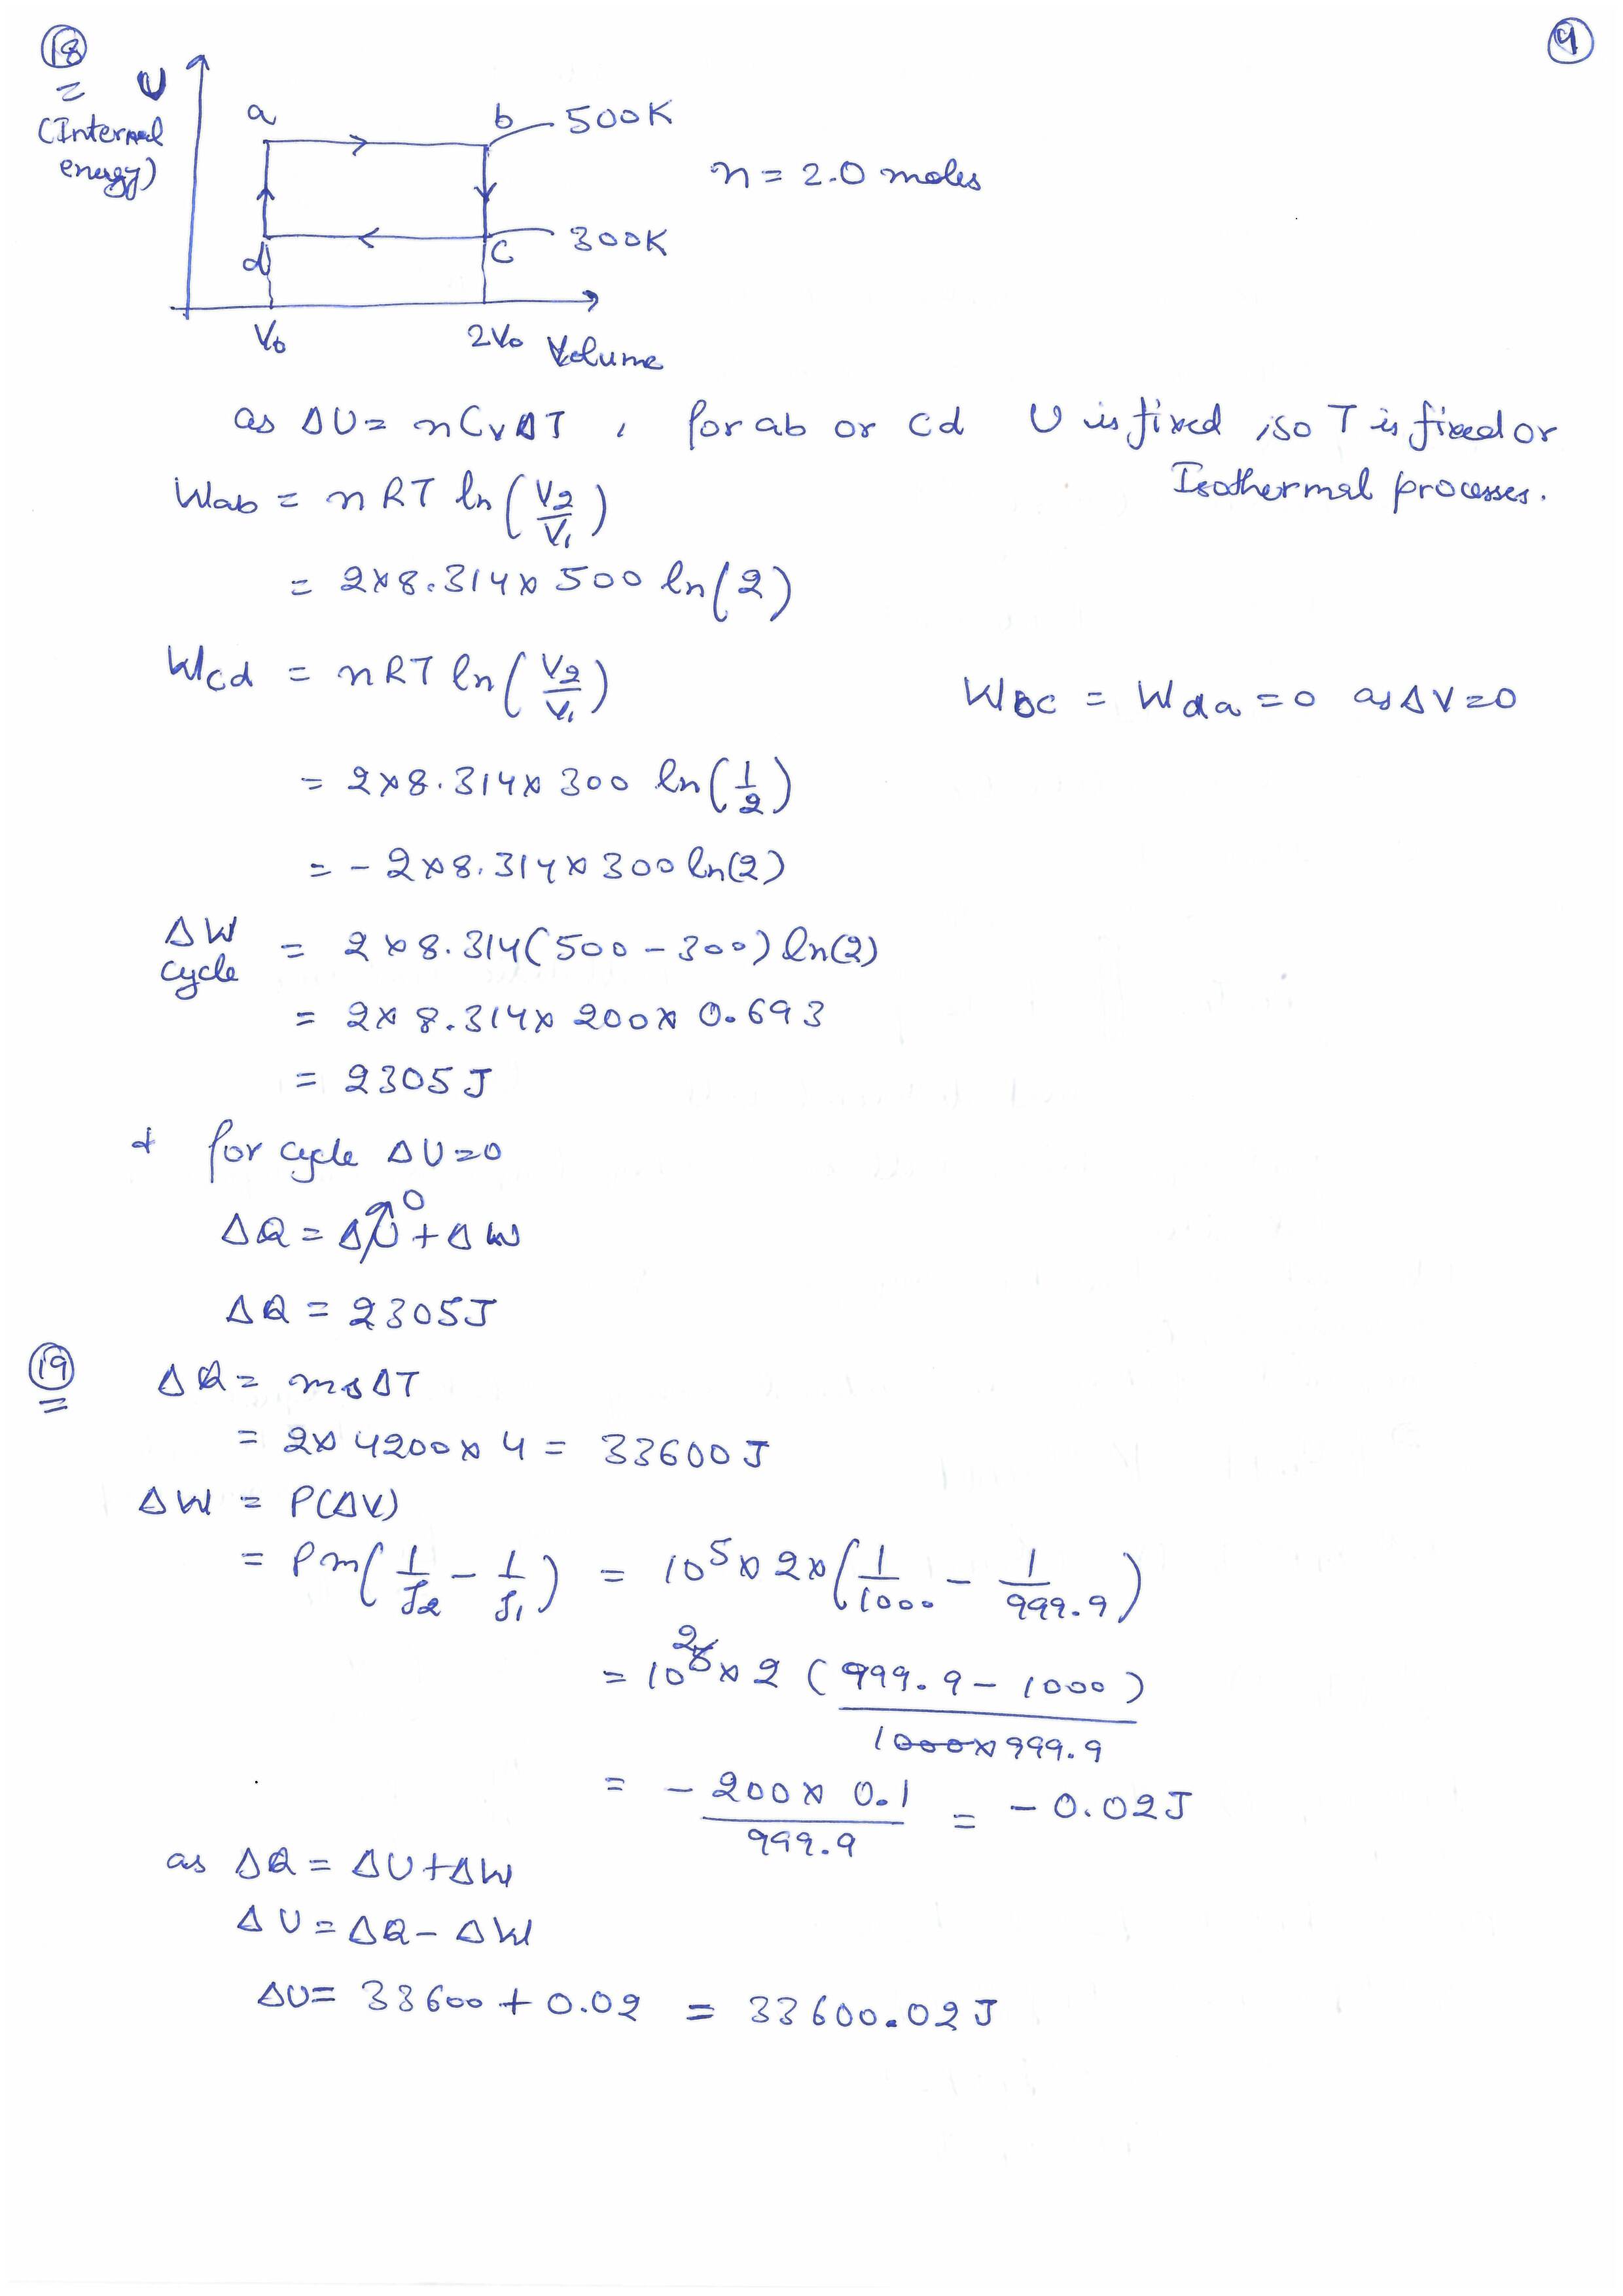 18
9
U
(Internal energy)
a
b
500K
n = 2.0 moles
d
c
300K
V₀
2V₀
Volume
as ΔU = nCvΔT , for ab or cd U is fixed , so T is fixed or
Isothermal processes.
Wab = nRT ln(V₂/V₁)
= 2×8.314×500 ln(2)
Wcd = nRT ln(V₂/V₁)
Wbc = Wda = 0 as ΔV=0
= 2×8.314×300 ln(1/2)
= - 2×8.314×300 ln(2)
ΔW cycle = 2×8.314(500-300) ln(2)
= 2×8.314×200×0.693
= 2305 J
& for cycle ΔU=0
ΔQ = ΔU⁰ + ΔW
ΔQ = 2305J
19
ΔQ = msΔT
= 2×4200×4 = 33600 J
ΔW = P(ΔV)
= Pm(1/ρ₂ - 1/ρ₁) = 10⁵×2×(1/1000 - 1/999.9)
= 10²×2 (999.9 - 1000)/1000×999.9
= - 200×0.1/999.9 = - 0.02J
as ΔQ = ΔU+ΔW
ΔU = ΔQ - ΔW
ΔU = 33600 + 0.02 = 33600.02 J